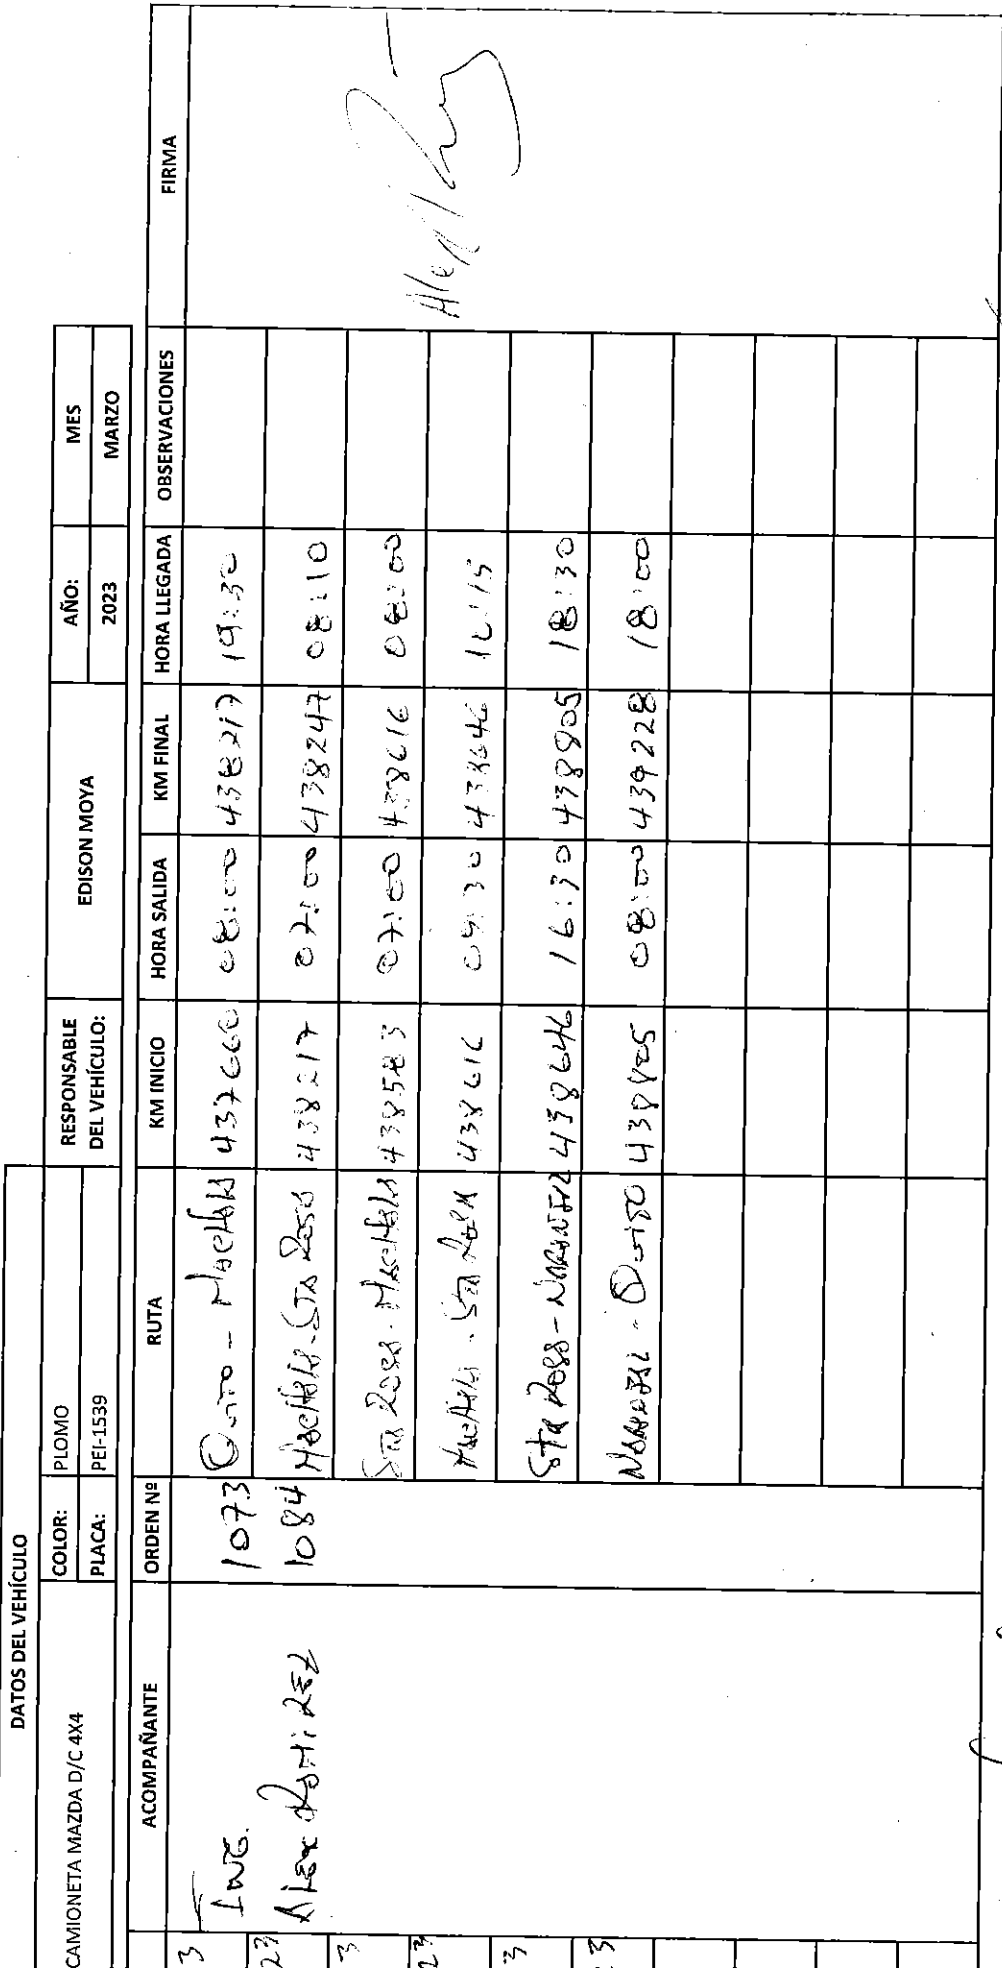 DATOS DEL VEHÍCULO
CAMIONETA MAZDA D/C 4X4 COLOR: PLOMO RESPONSABLE DEL VEHÍCULO: EDISON MOYA AÑO: MES
PLACA: PEI-1539 2023 MARZO
ACOMPAÑANTE ORDEN Nº RUTA KM INICIO HORA SALIDA KM FINAL HORA LLEGADA OBSERVACIONES FIRMA
3 ING. 1073 Quito - Machala 437660 08:00 438217 19:30
23 Alex Ramirez 1084 Machala - Sta Rosa 438217 07:00 438247 08:10
3 Sta Rosa - Machala 438583 07:00 438616 08:00
23 Machala - Sta Rosa 438616 09:30 438646
3 Sta Rosa - Naranjal 438646 16:30 438905 18:30
3 Naranjal - Quito 08:00 439228 18:00